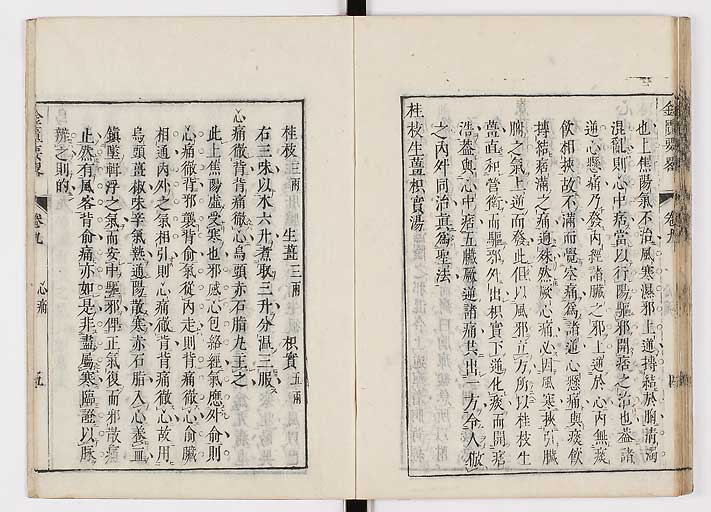 金匱要略
卷九
也上焦陽氣不治風寒濕邪上逆搏結於胸清濁
混亂則心中痞當以行陽驅邪開痞之治也蓋諸
逆心懸痛乃發內經諸臟之邪上逆於心內無痰
飲相挾故不滿而覺空痛為諸逆心懸痛與痰飲
搏結痞滿之痛逈殊然厥心痛必因風寒挾引臟
腑之氣上逆而發此但以風邪立方所以桂枝生
薑宣和營衛而驅邪外出枳實下逆化痰而開痞
浩蓋與心中痞五臟厥逆諸痛共出一方令人倣
之內外同治眞為聖法
桂枝生薑枳實湯
桂枝三兩 生薑三兩 枳實五兩
右三味以水六升煮取三升分溫三服
心痛徹背背痛徹心烏頭赤石脂丸主之
此上焦陽虛受寒也邪感心包絡經氣應外俞則
心痛徹背邪襲背俞氣從內走則背痛徹心俞臟
相通內外之氣相引則心痛徹背背痛徹心故用
烏頭薑椒味辛氣熱通陽散寒赤石脂入心養血
鎮墜輯浮之氣而安中驅邪俾正氣復而邪散痛
止然有風客背俞痛亦如是非盡屬寒臨證以脉
辨之則的
金匱要略
卷九
心痛
五